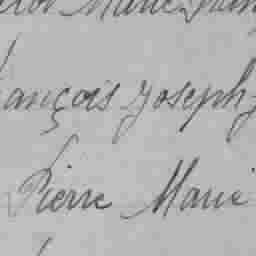 Marie
François Joseph
Pierre Marie